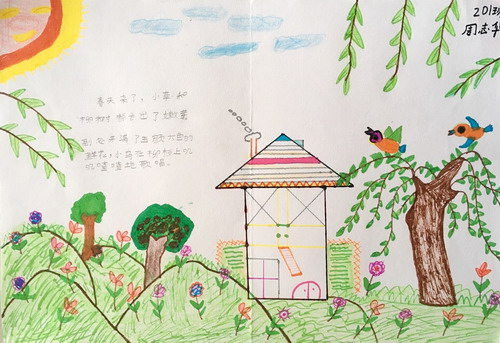 201班
周志
春天来了，小草和
柳树都长出了嫩葉
到处开满了五颜六色的
鲜花，小鸟在柳树上叽
叽喳喳地歌唱。